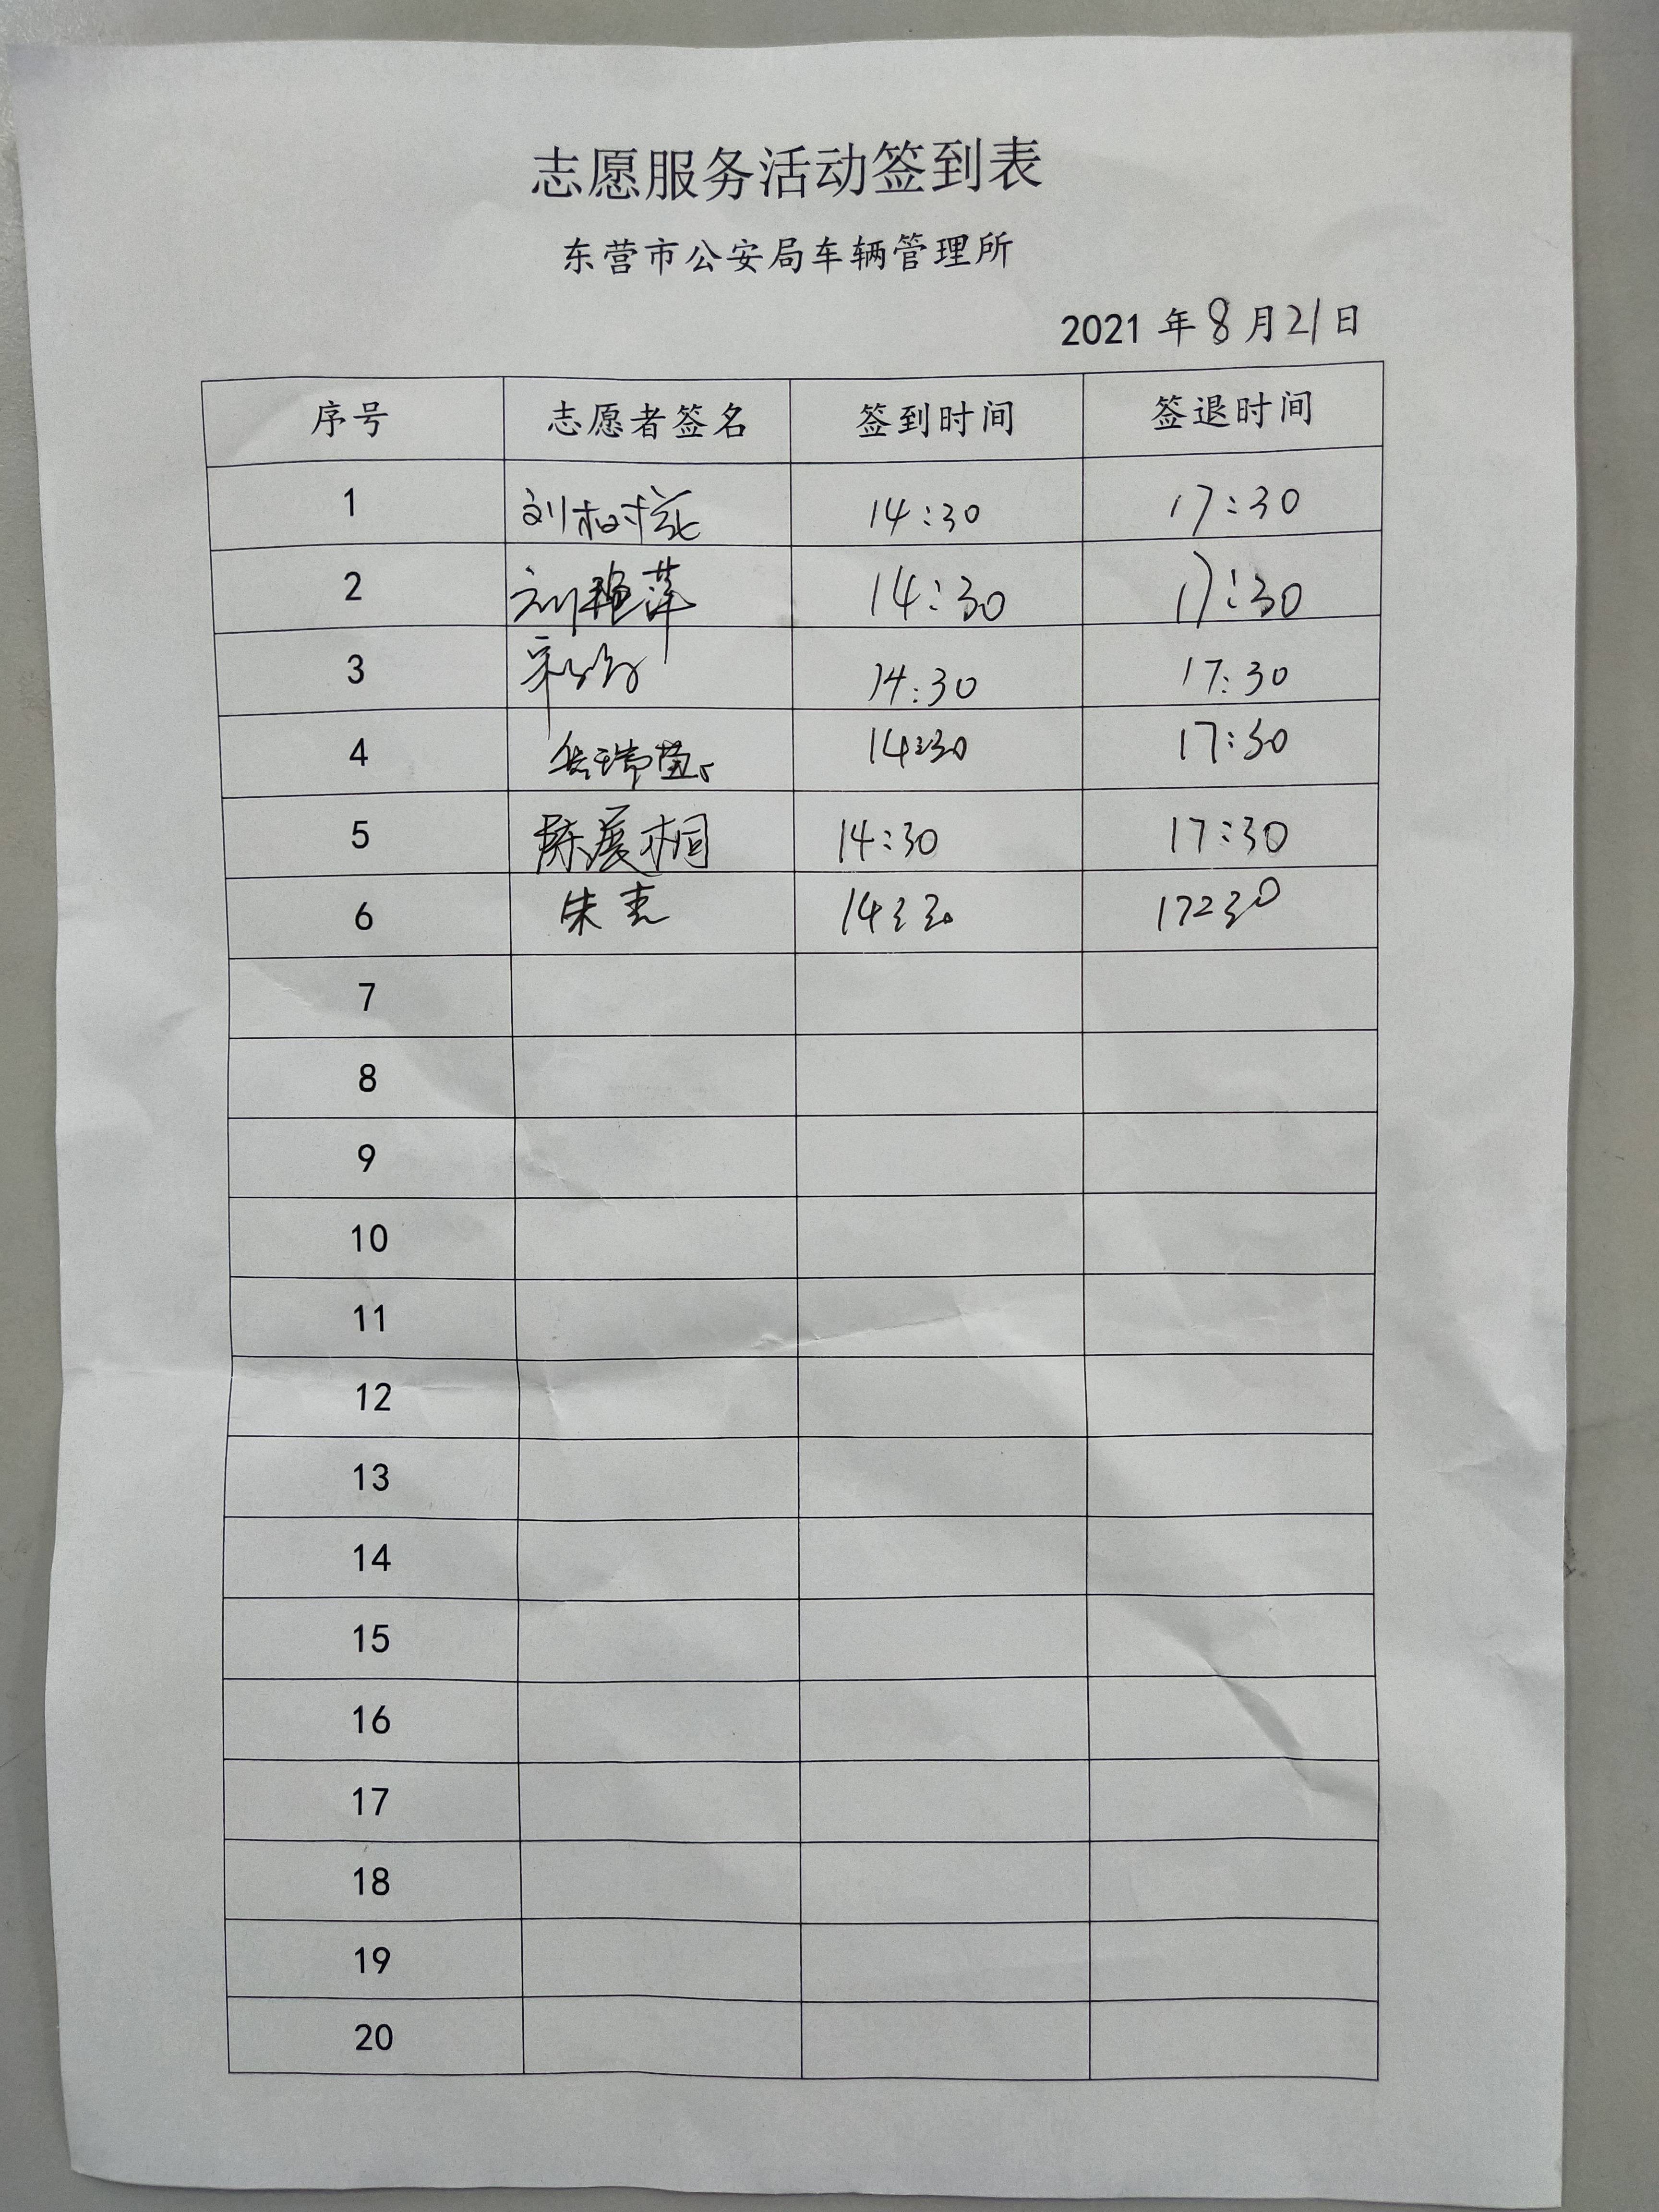 志愿服务活动签到表
东营市公安局车辆管理所
2021 年 8 月 21 日
序号 志愿者签名 签到时间 签退时间
1 刘 14:30 17:30
2 刘艳萍 14:30 17:30
3 14:30 17:30
4 14:30 17:30
5 陈展桐 14:30 17:30
6 朱 14:30 17:30
7
8
9
10
11
12
13
14
15
16
17
18
19
20